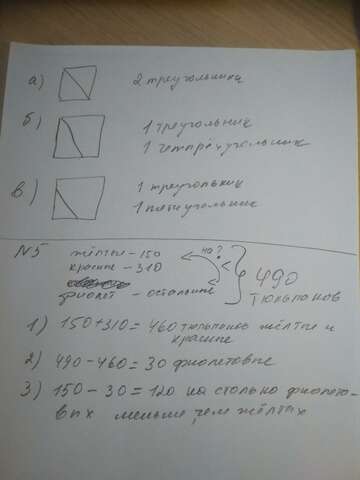 а) 2 треугольника
б) 1 треугольник
1 четырёхугольник
в) 1 треугольник
1 пятиугольник
N5 жёлтые - 150 на ? <
красные - 310
фиолет - остальные
490
тюльпанов
1) 150+310=460 тюльпанов жёлтые и
красные
2) 490-460=30 фиолетовые
3) 150-30=120 на столько фиолето-
вых меньше чем жёлтых